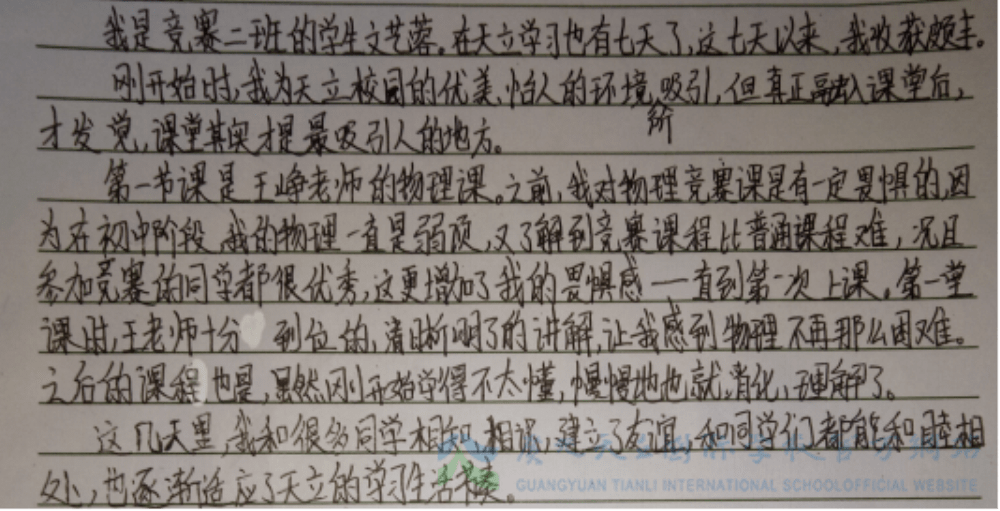 我是竞赛二班的学生文艺蓉。在天立学习也有七天了,这七天以来,我收获颇丰。
刚开始时,我为天立校园的优美、怡人的环境所吸引,但真正融入课堂后,
才发觉,课堂其实才是最吸引人的地方。
第一节课是王峥老师的物理课。之前,我对物理竞赛课是有一定畏惧的,因
为在初中阶段,我的物理一直是弱项,又了解到竞赛课程比普通课程难,况且
参加竞赛的同学都很优秀,这更增加了我的畏惧感——直到第一次上课。第一堂
课时,王老师十分 到位的,清晰明了的讲解,让我感到物理不再那么困难。
之后的课程也是,虽然刚开始学得不太懂,慢慢地也就消化,理解了。
这几天里,我和很多同学相知,相识,建立了友谊,和同学们都能和睦相
处,也逐渐适应了天立的学习生活节奏。
GUANGYUAN TIANLI INTERNATIONAL SCHOOL OFFICIAL WEBSITE